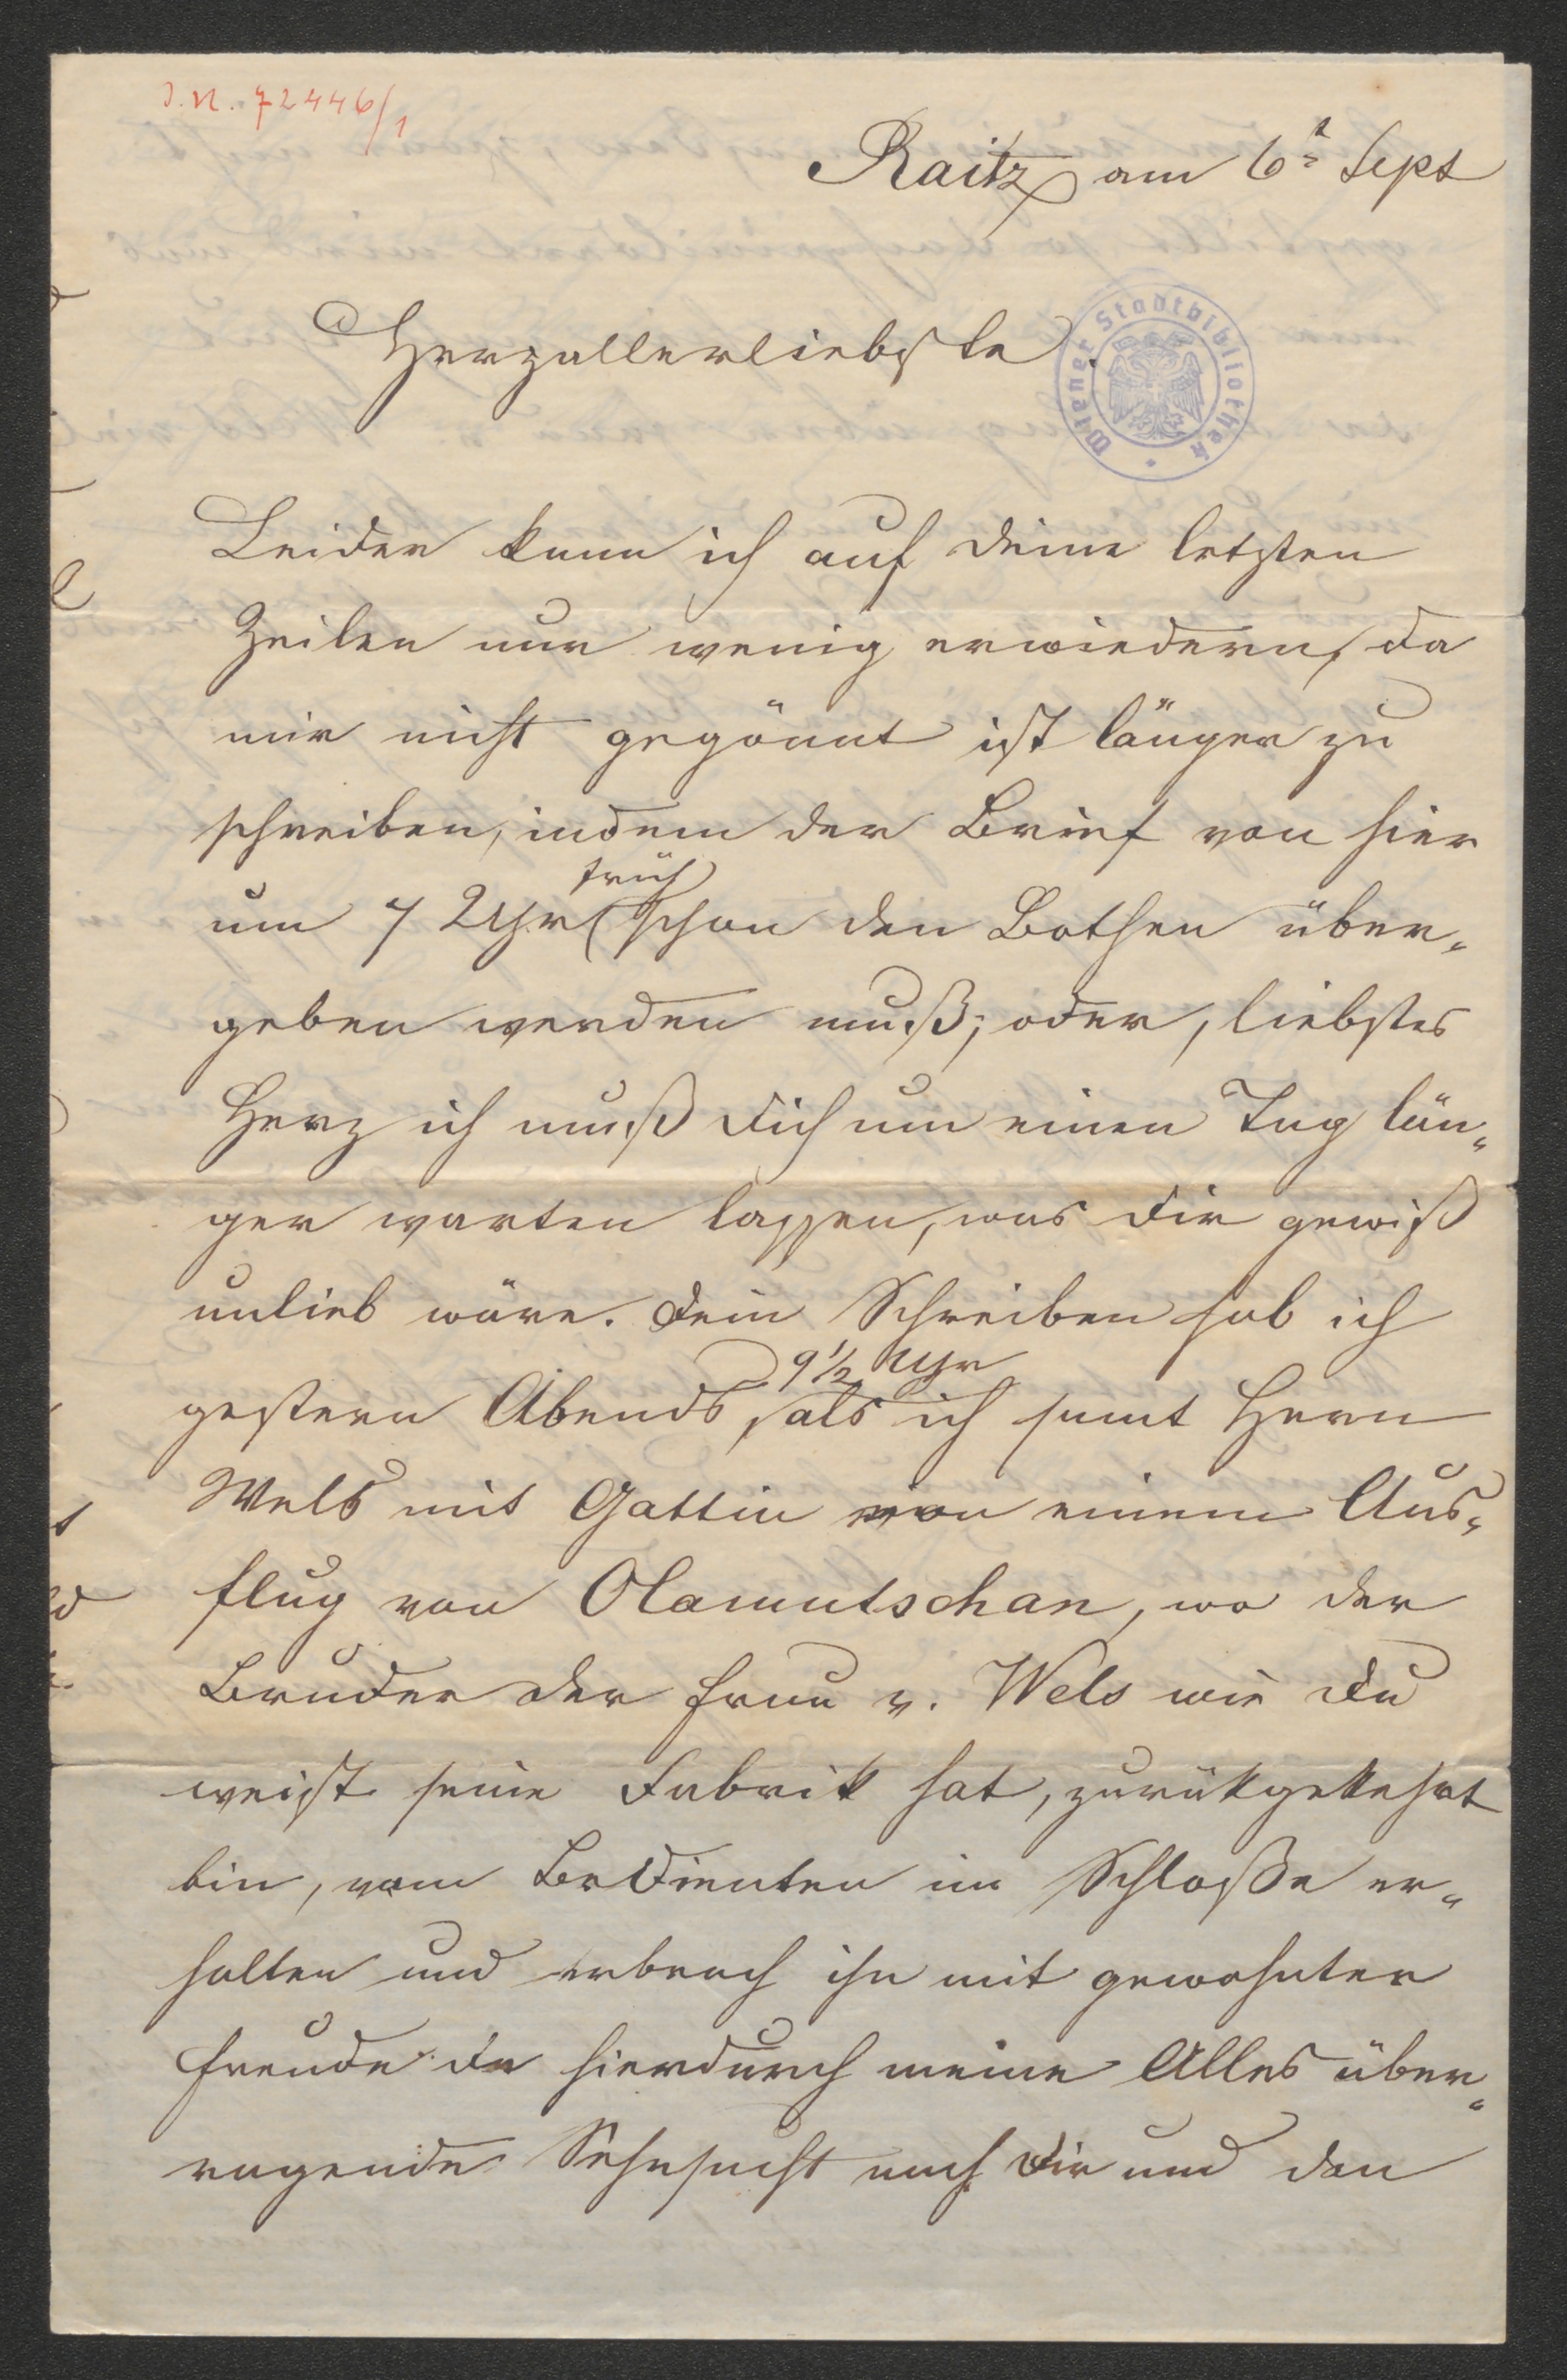 J.N. 72446/1
Raitz am 6t Sept
Herzallerliebste.
Wiener Stadtbibliothek
Leider kann ich auf deine letzten
Zeilen nur wenig erwiedern, da
mir nicht gegönnt ist länger zu
schreiben, indem der Brief von hier
früh
um 7 Uhr schon den Bothen über-
geben werden muß; oder, liebstes
Herz ich muß dich um einen Tag län-
ger warten lassen, was dir gewiß
unlieb wäre. Dein Schreiben hab ich
9½ Uhr
gestern Abends, als ich samt Herrn
Wels mit Gattin von einem Aus-
flug von Olamutschan, wo der
Bruder der Frau v. Wels wie du
weist seine Fabrik hat, zurükgekehrt
bin, vom Bedienten im Schloße er-
halten und erbrach ihn mit gewohnter
Freude da hierdurch meine Alles über-
ragende Sehnsucht nach dir und den